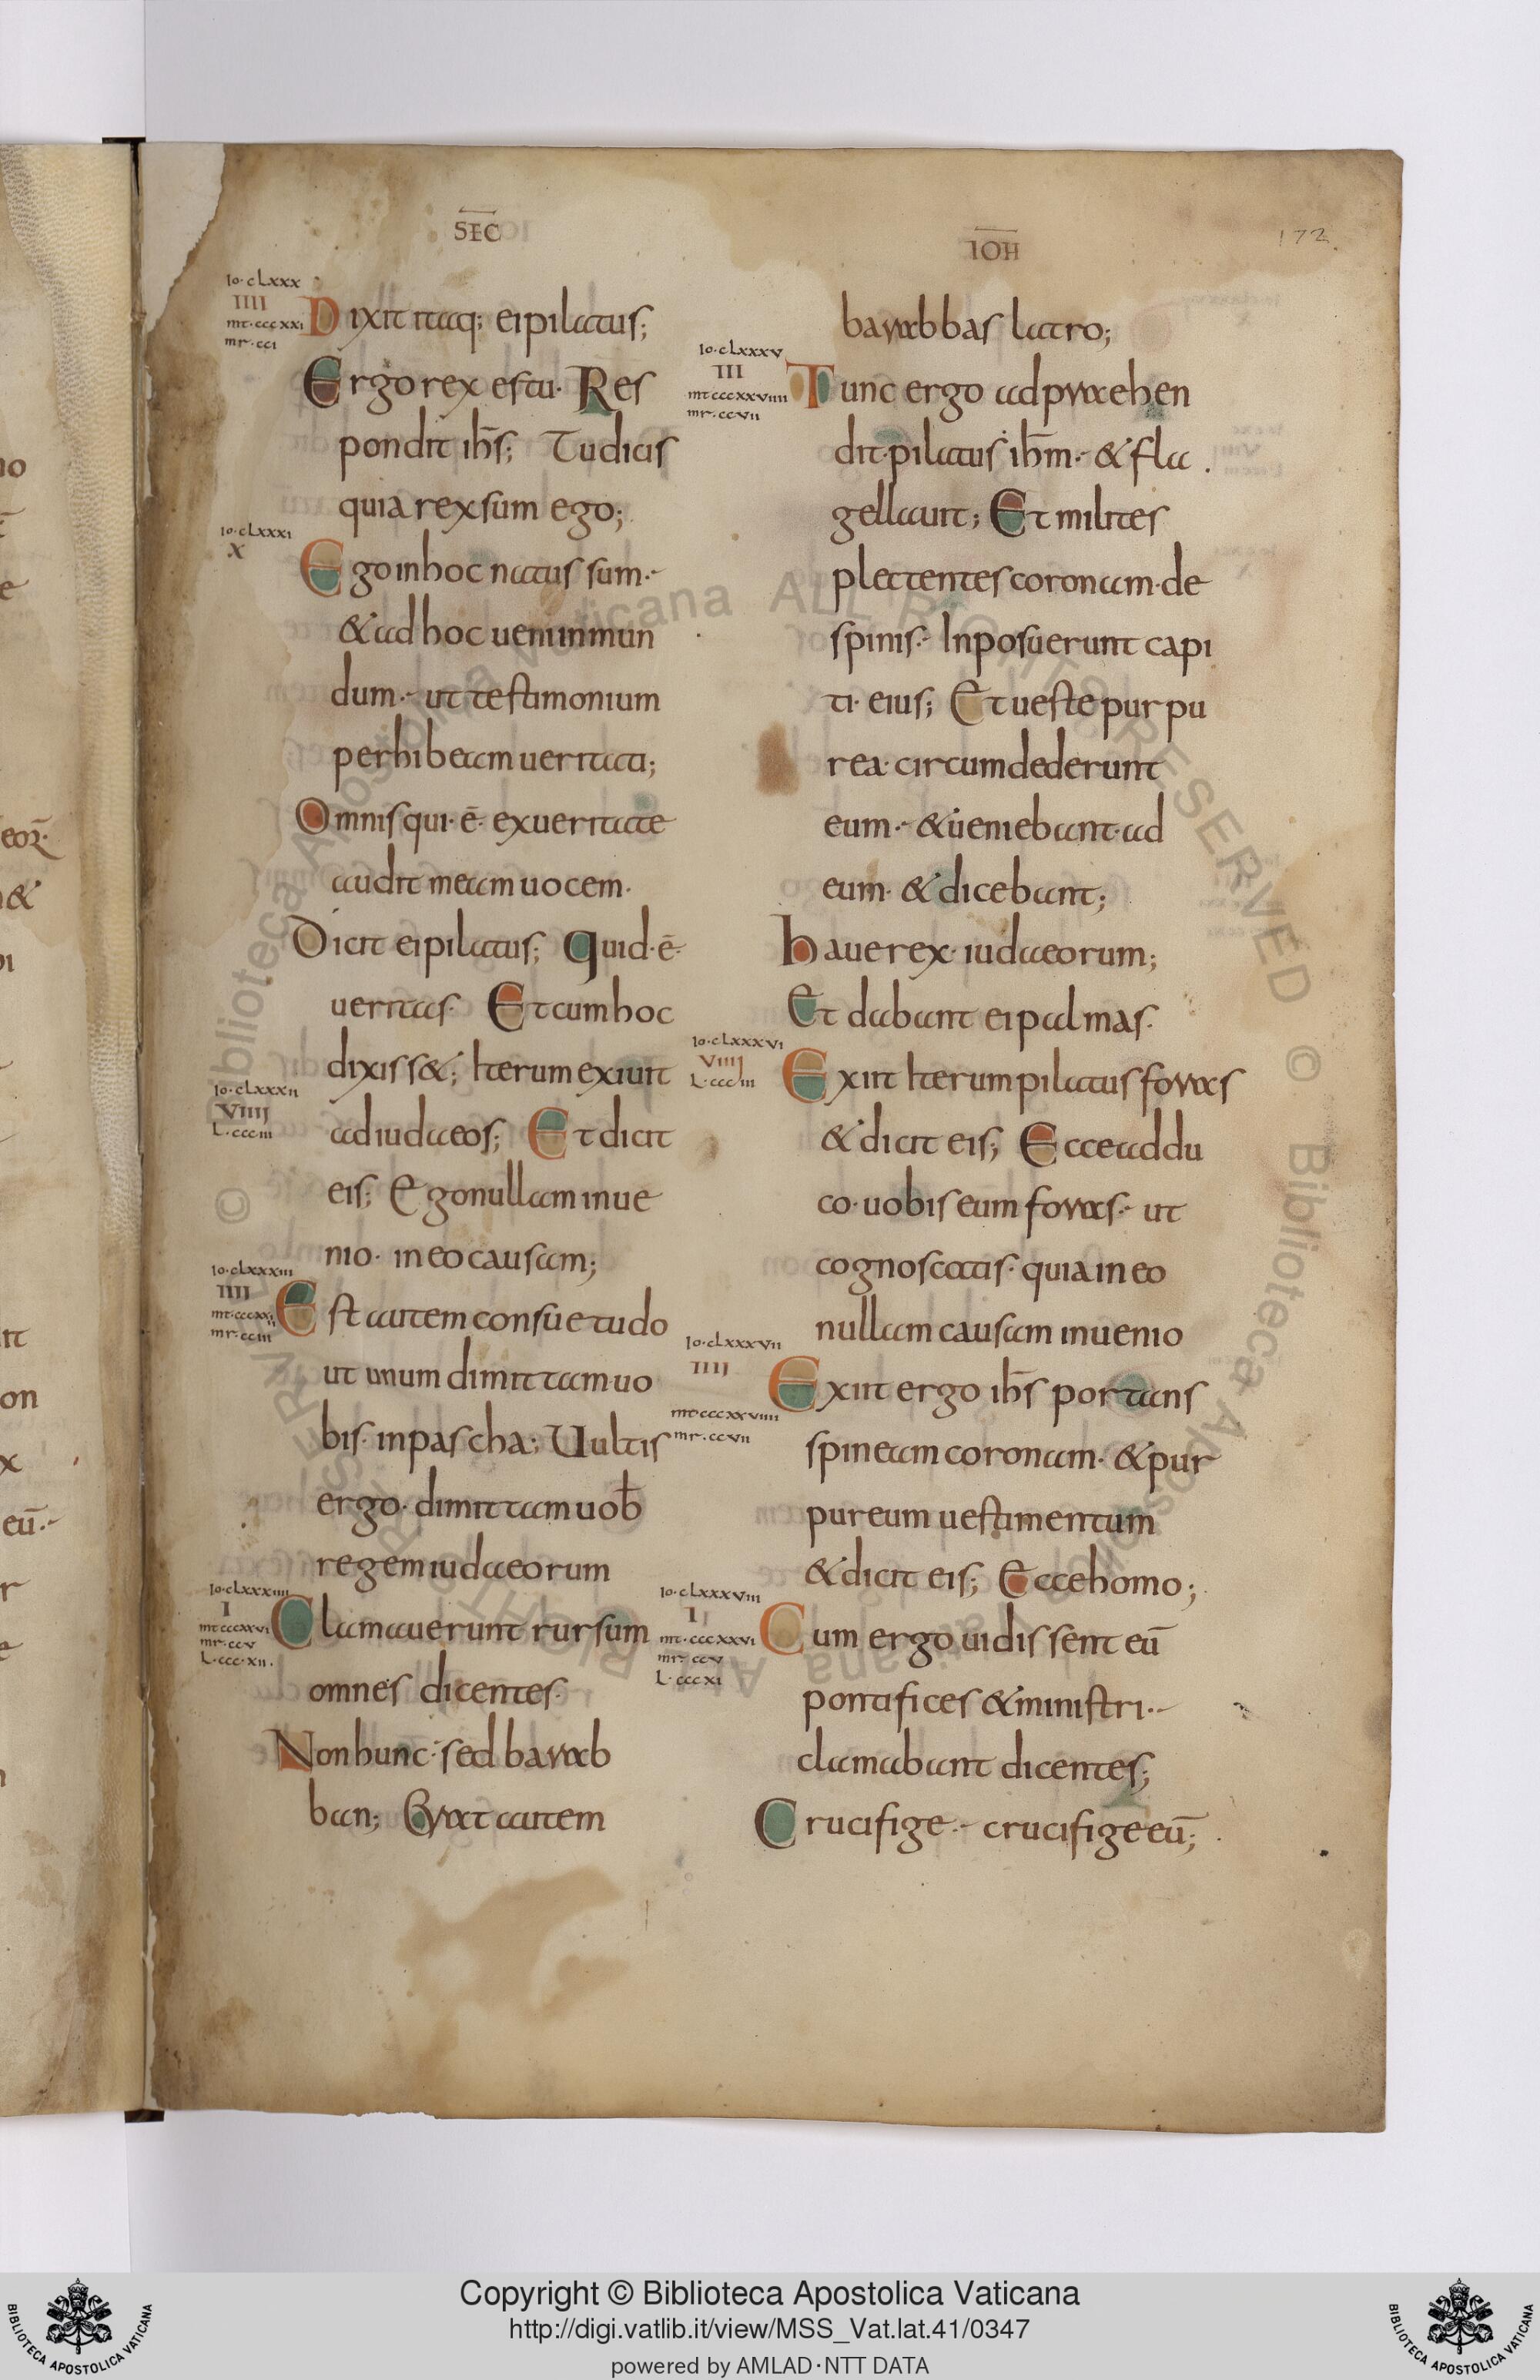 SEC̅
IO̅H
172
Io·cLxxx
IIII
mt·cccxxi
mr·cci
Dixit itaq; ei pilatus;
Ergo rex es tu· Res
pondit ih̅s; Tu dicis
quia rex sum ego;
Io·cLxxxi
X
Ego in hoc natus sum·-
& ad hoc ueni in mun
dum·- ut testimonium
perhibeam ueritati;
Omnis qui·ē· ex ueritate
audit meam uocem·
Dicit ei pilatus; Quid·ē·
ueritas· Et cum hoc
dixiss&; Iterum exiuit
Io·cLxxxii
VIIII
L·ccciii
ad iudaeos; Et dicit
eis; Ego nullam inue
nio· in eo causam;
Io·cLxxxiii
IIII
mt·cccxxii
mr·cciii
Est autem consuetudo
ut unum dimittam uo
bis· in pascha; Uultis
ergo· dimittam uob̅
regem iudaeorum
Io·cLxxxiiii
I
mt·cccxxvi
mr·ccv
L·ccc·xii·
Clamauerunt rursum
omnes dicentes·
Non hunc· sed barab
ban; Erat autem
barabbas latro;
Io·cLxxxv
III
mt·cccxxviiii
mr·ccvii
Tunc ergo adpraehen
dit·pilatus ih̅m·- & fla
gellauit; Et milites
plectentes coronam·de
spinis·- Inposuerunt capi
ti· eius; Et ueste purpu
rea· circumdederunt
eum·- & ueniebant·ad
eum· & dicebant;
haue rex· iudaeorum;
Et dabant ei palmas·
Io·cLxxxvi
VIIII
L·ccciii
Exiit Iterum pilatus foras
& dicit eis; Ecce addu
co· uobis eum foras·- ut
cognoscatis· quia in eo
nullam causam inuenio
Io·cLxxxvii
IIII
mt·cccxxviiii
mr·ccvii
Exiit ergo ih̅s portans
spineam coronam· & pur
pureum uestimentum
& dicit eis; Ecce homo;
Io·cLxxxviii
I
mt·cccxxvi
mr·ccv
L·cccxi
Cum ergo uidissent eū
pontifices & ministri·-
clamabant dicentes;
Crucifige·- crucifige eū;
© Biblioteca Apostolica Vaticana ALL RIGHTS RESERVED
© Biblioteca Apostolica Vaticana ALL RIGHTS RESERVED
Copyright © Biblioteca Apostolica Vaticana
http://digi.vatlib.it/view/MSS_Vat.lat.41/0347
powered by AMLAD·NTT DATA
BIBLIOTECA APOSTOLICA VATICANA
BIBLIOTECA APOSTOLICA VATICANA